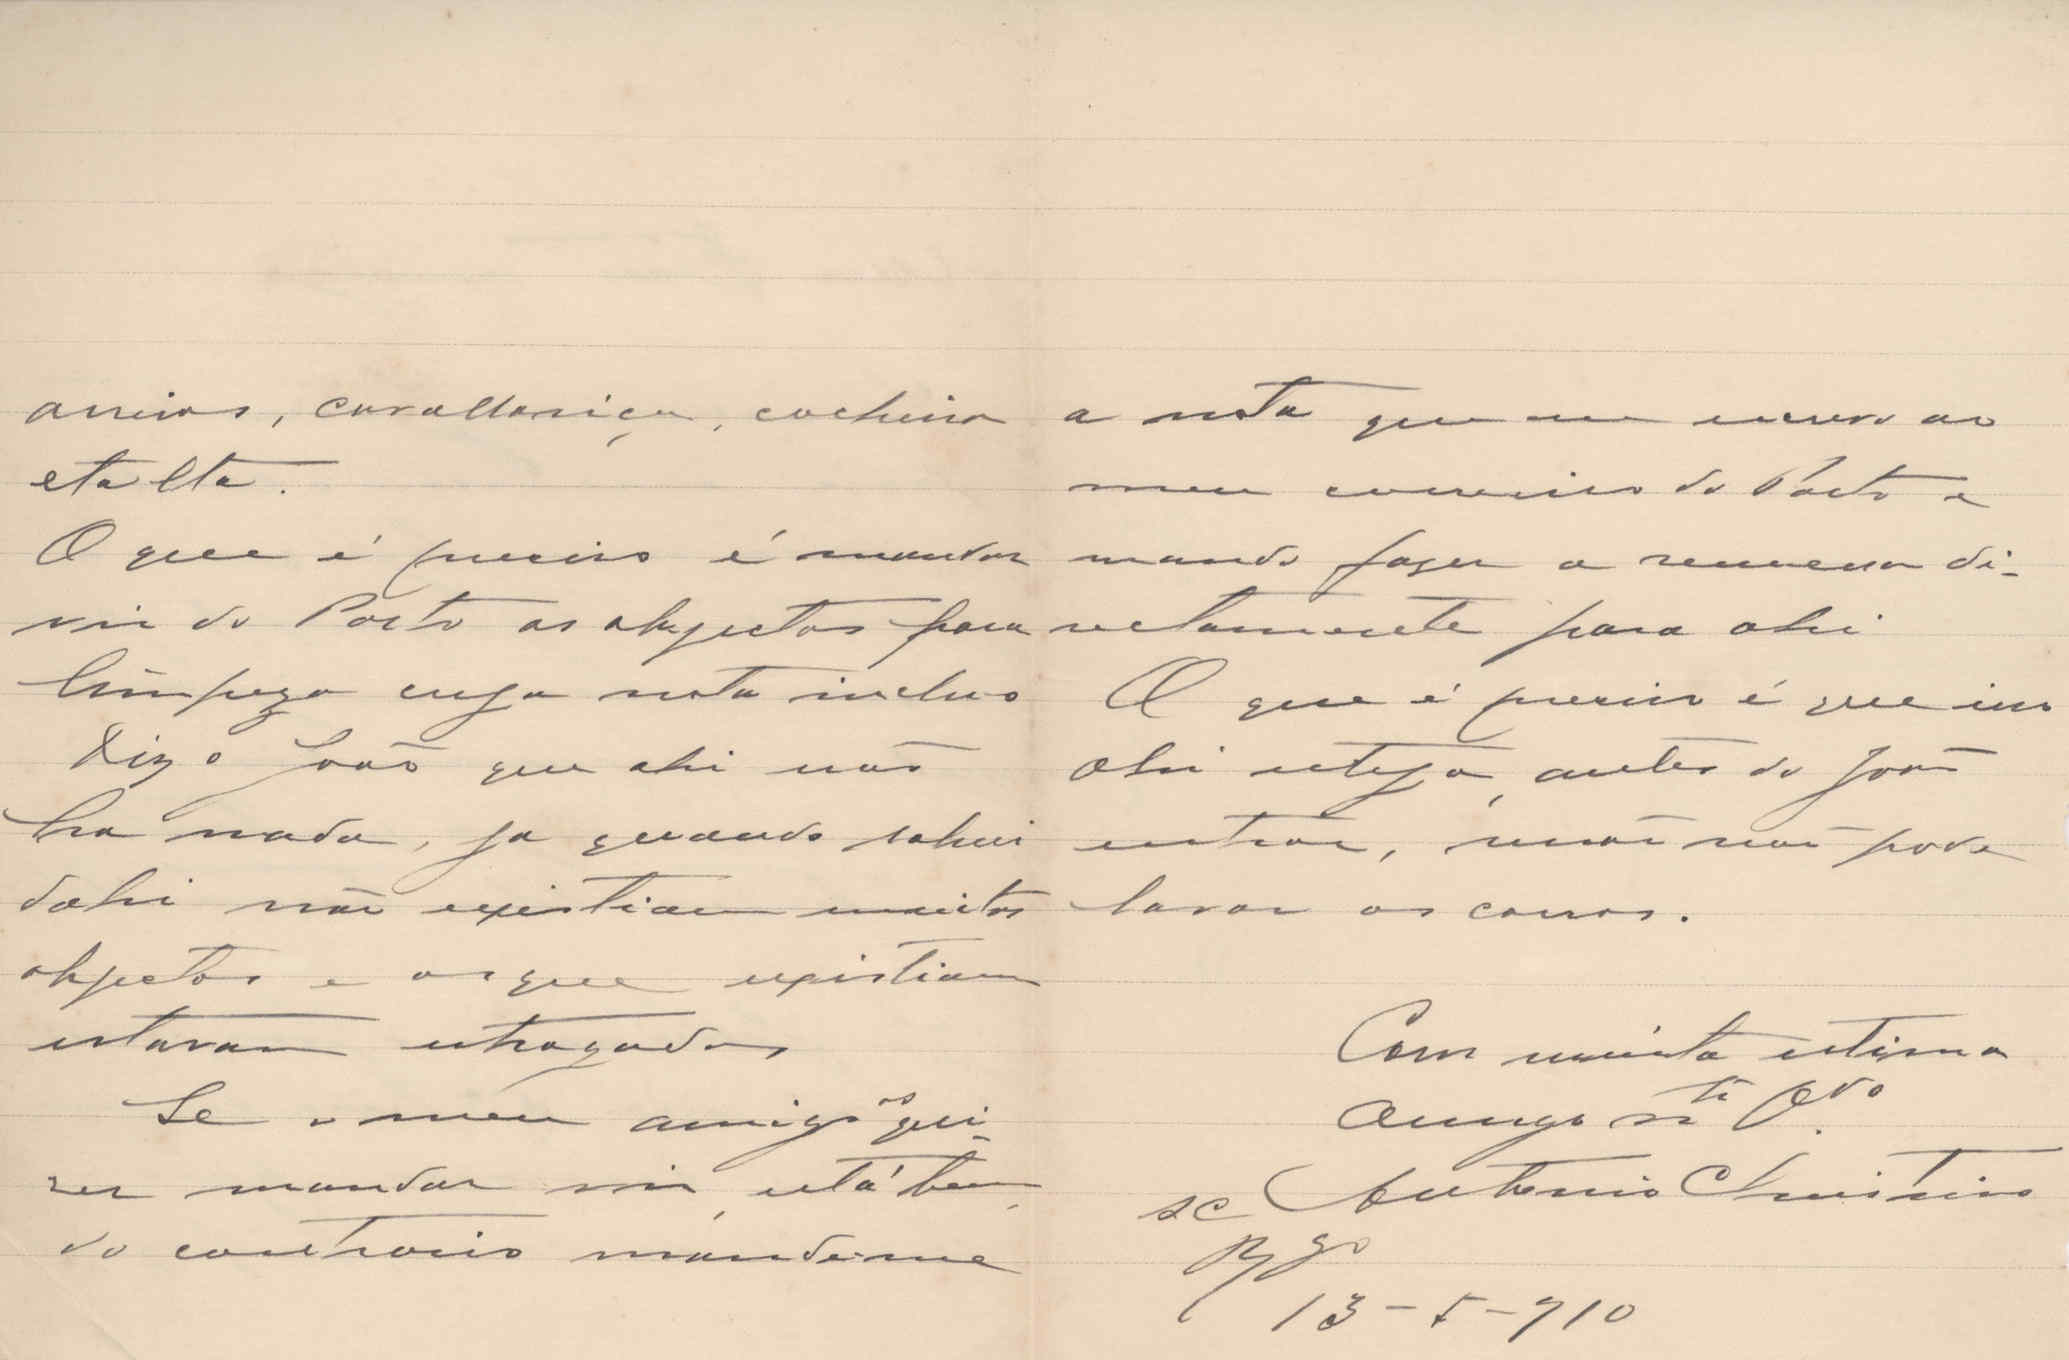 arreios, cavallariça, cocheira
eta lta.
O que é preciso é mandar
vir do Porto os objectos para
limpeza cuja nota incluo
Diz o João que ahi não
ha nada, ja quando sahui
dahi não existiam muitos
objectos e os que existiam
estavam estragados
Se o meu amigo qui-
zer mandar vir, está bem,
do contrario mande-me
a nota que eu escrevo ao
meu correeiro do Porto e
mando fazer a remessa di-
rectamente para ahi
O que é preciso é que isso
ahi esteja, antes do João
entrar, senão não pode
lavar os carros.
Com muita estima
Amigo m to O do
SC Antonio Christino
13-5-910